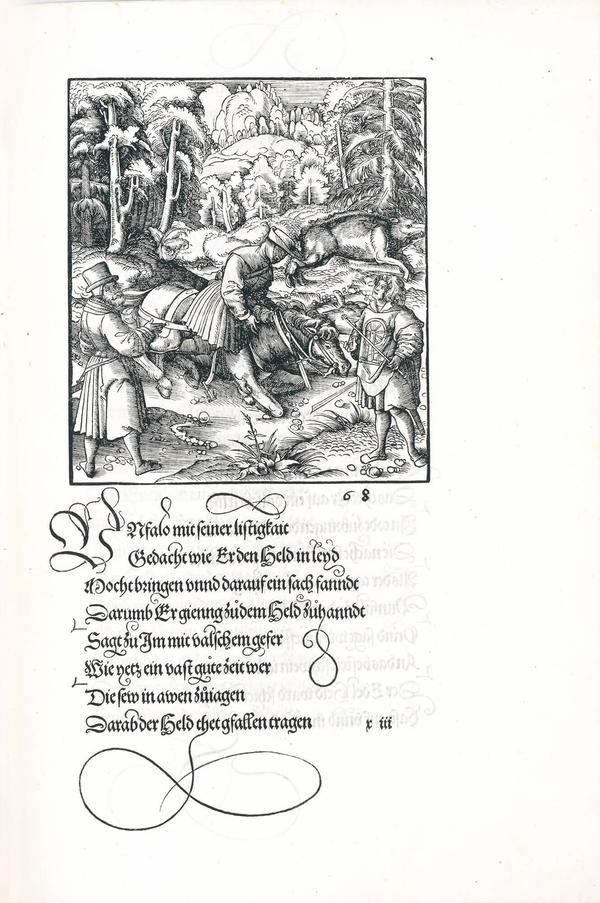 6 8
VNfalo mit seiner listigkait
Gedacht wie Er den Held in leyd
Mocht bringen vnnd darauf ein sach fanndt
Darumb Er gieng zůdem Held zůhanndt
Sagt zu Im mit valschem gefer
Wie yetz ein vast gůte zeit wer
Die sew in awen zůiagen
Darab der Held thet gfallen tragen
x iii